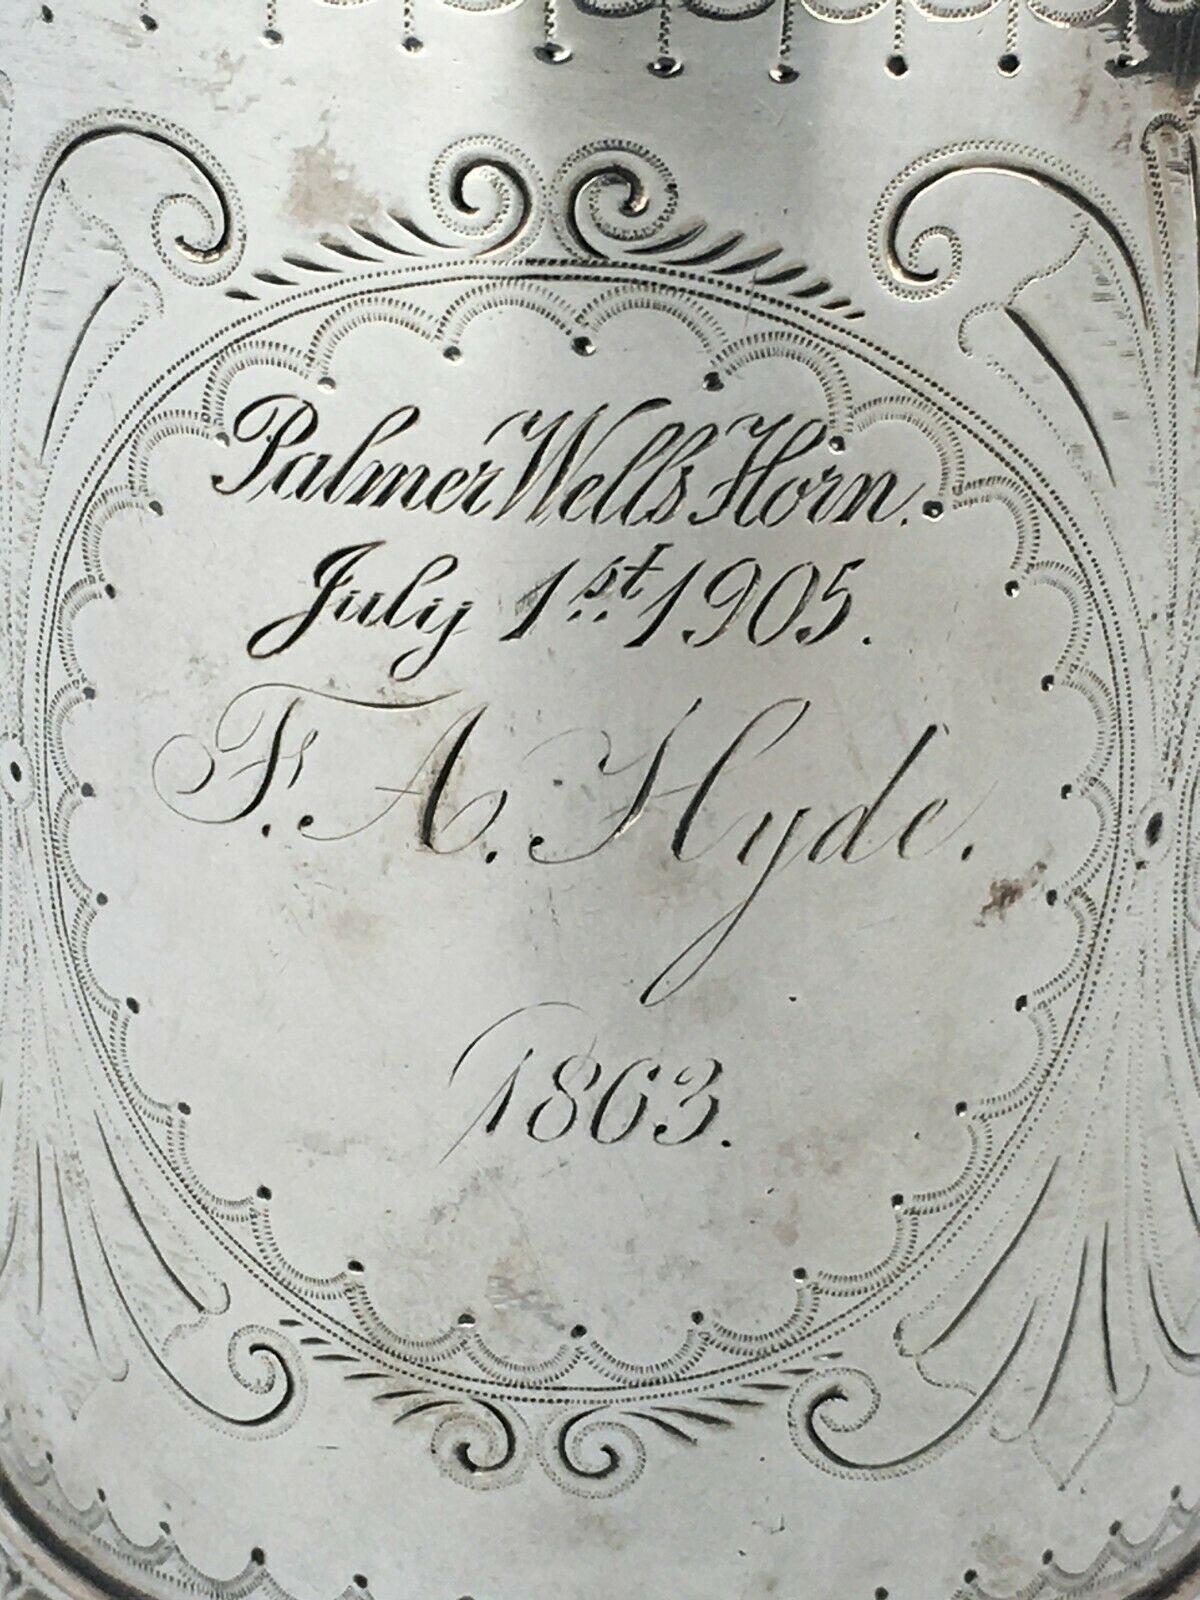 Palmer Wells Horn.
July 1st. 1905.
F. A. Hyde.
1863.